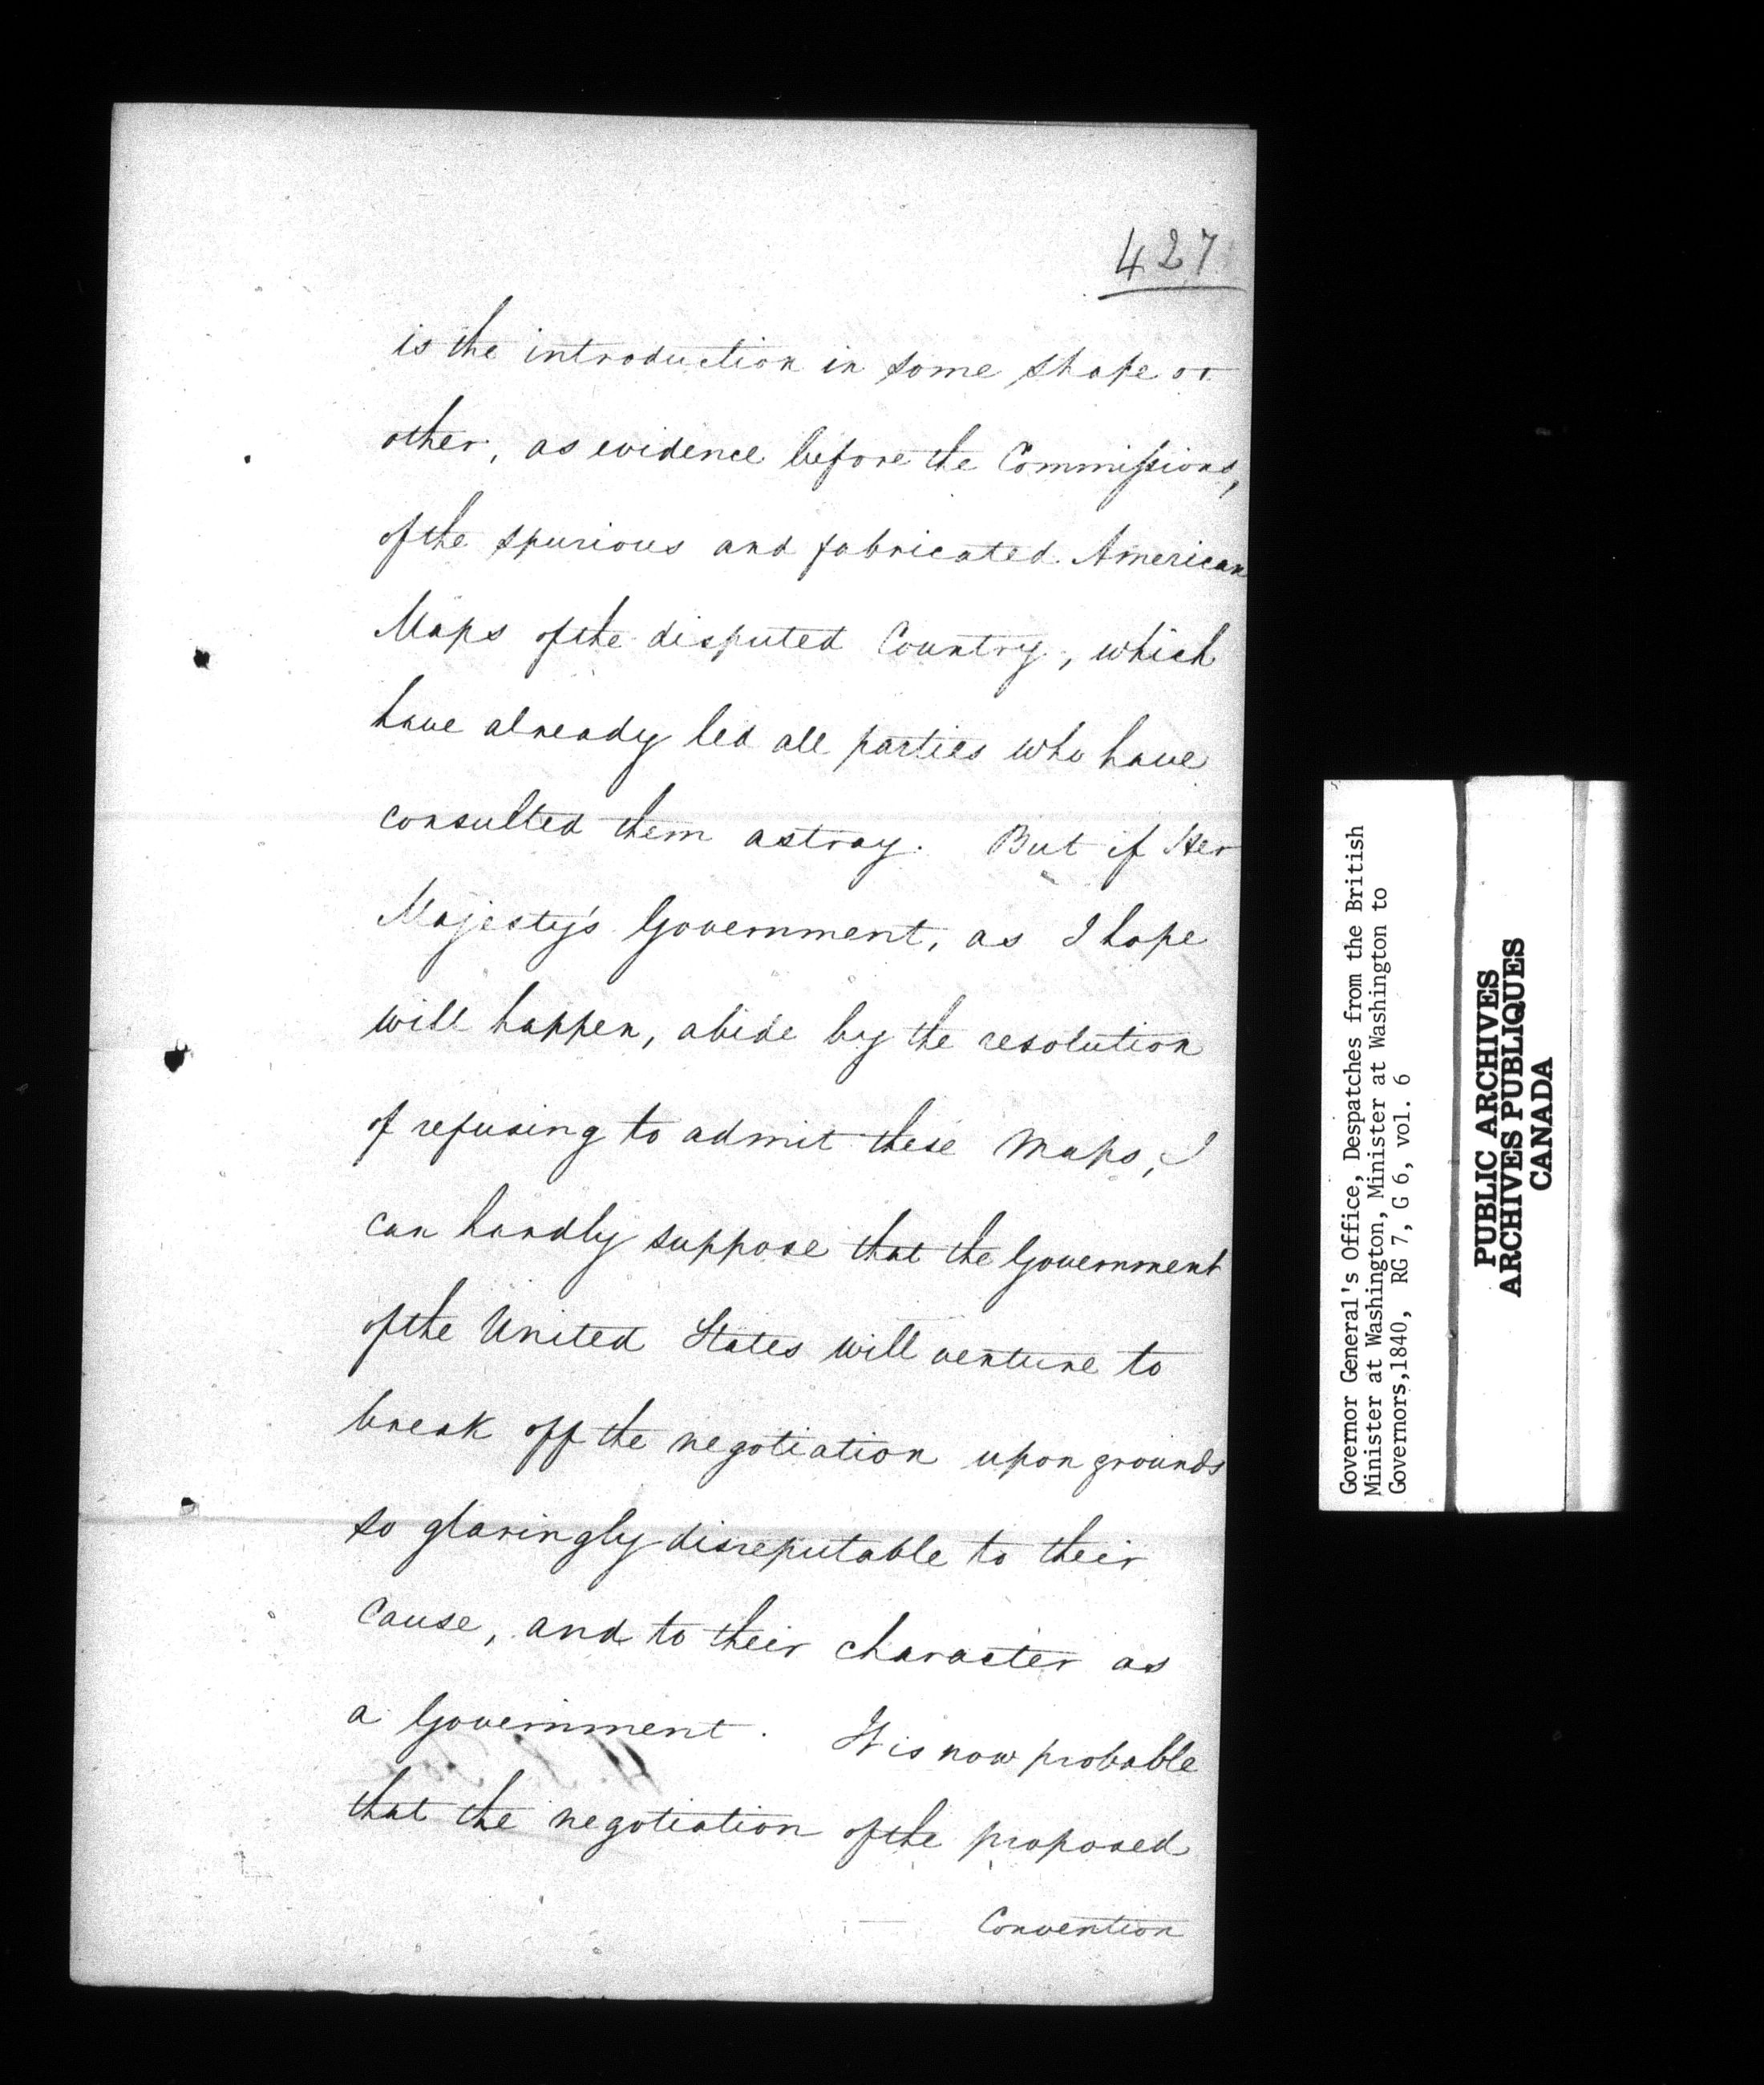 427
is the introduction in some shape or
other, as evidence before the Commissions,
of the spurious and fabricated American
Maps of the disputed Country, which
have already led all parties who have
consulted them astray. But if Her
Majesty's Government, as I hope
will happen, abide by the resolution
of refusing to admit these Maps, I
can hardly suppose that the Government
of the United States will venture to
break off the negotiation upon grounds
so glaringly disreputable to their
Cause, and to their character as
a Government. It is now probable
that the negotiation of the proposed
Convention
Governor General's Office, Despatches from the British
Minister at Washington, Minister at Washington to
Governors,1840, RG 7, G 6, vol. 6
PUBLIC ARCHIVES
ARCHIVES PUBLIQUES
CANADA